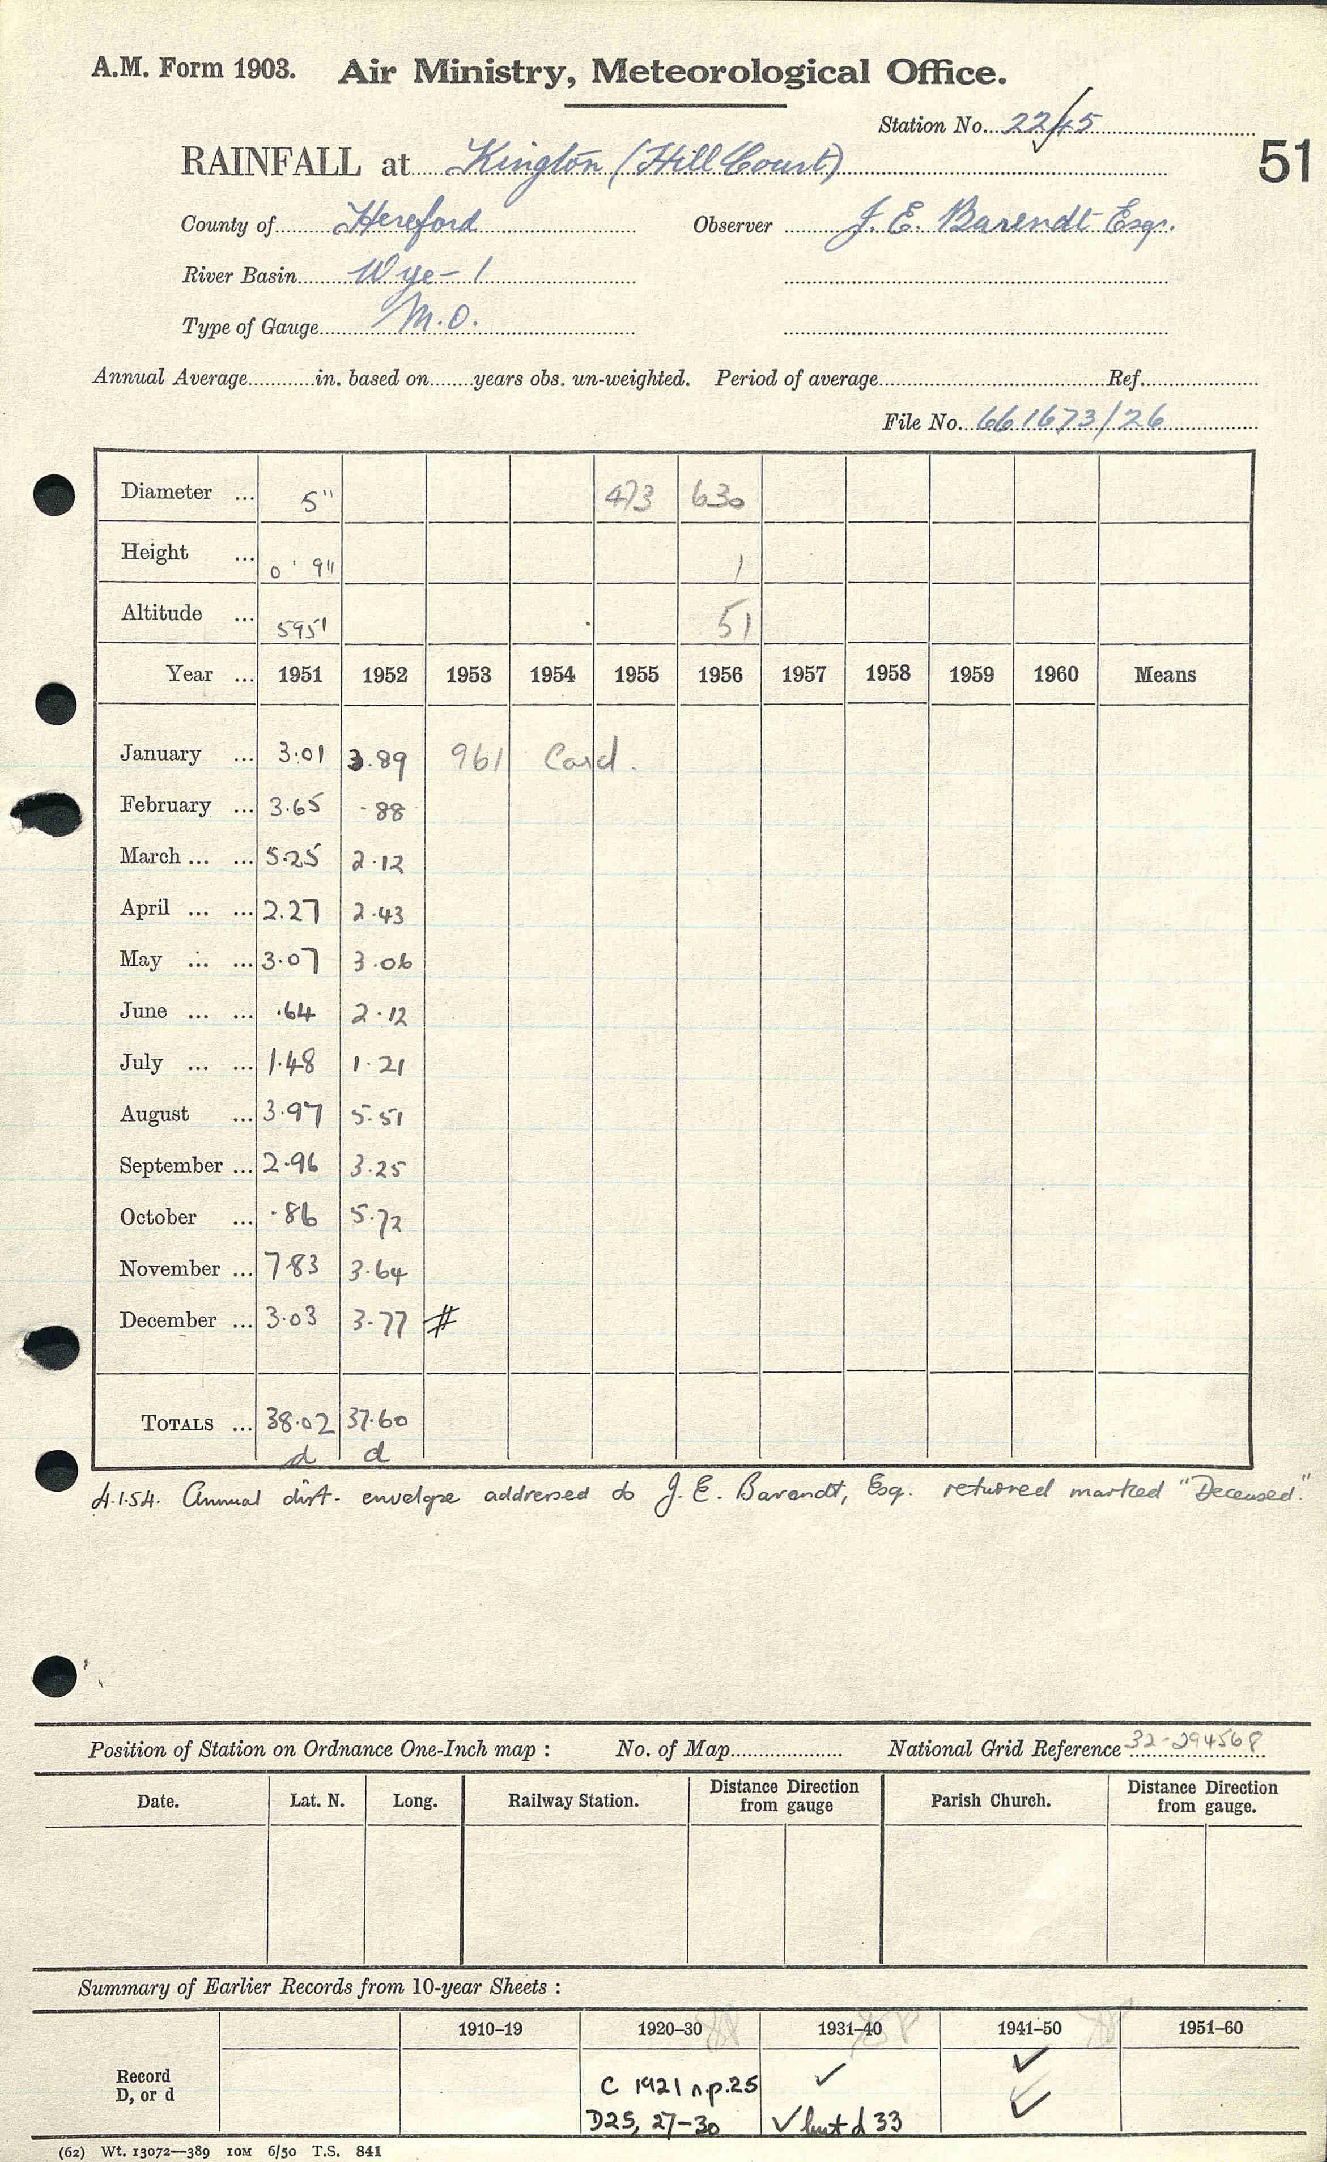 A.M. Form 1903. Air Ministry, Meteorological Office.
Station No. 22/45
RAINFALL at Kington (Hill Court)
51
County of Hereford Observer J. E. Barendt Esqr.
River Basin Wye - 1
Type of Gauge M.O.
Annual Average in. based on years obs. un-weighted. Period of average Ref.
File No. 661673/26
Diameter ... 5" 473 630
Height ... 0' 9" 1
Altitude ... 595' 51
Year ... 1951 1952 1953 1954 1955 1956 1957 1958 1959 1960 Means
January ... 3.01 3.89 961 Card.
February ... 3.65 .88
March ... ... 5.25 2.12
April ... ... 2.27 2.43
May ... ... 3.07 3.06
June ... ... .64 2.12
July ... ... 1.48 1.21
August ... 3.97 5.51
September ... 2.96 3.25
October ... .86 5.72
November ... 7.83 3.64
December ... 3.03 3.77 #
TOTALS ... 38.02 37.60
d d
4.1.54. Annual dist. envelope addressed to J. E. Barendt, Esq. returned marked "Deceased."
Position of Station on Ordnance One-Inch map : No. of Map National Grid Reference 32-294568
Date. Lat. N. Long. Railway Station. Distance Direction from gauge Parish Church. Distance Direction from gauge.
Summary of Earlier Records from 10-year Sheets :
1910–19 1920–30 1931–40 1941–50 1951–60
Record D, or d
C 1921 np.25 ✓ ✓
D25, 27–30 ✓ but d 33 ✓
(62) Wt. 13072—389 10M 6/50 T.S. 841